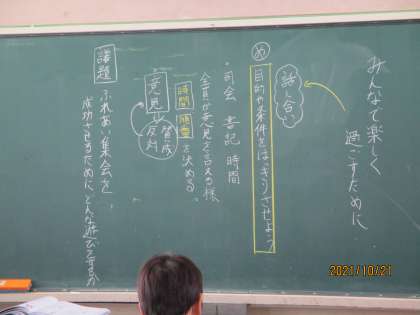 みんなで楽しく
過ごすために
話し合い
め
目的や条件をはっきりさせよう
・司会 書記 時間
全員が意見を言える様
時間 順番 を決める。
意見
賛成
反対
議題
ふれあい集会を
成功させるために、どんな遊びをするか
2021/10/21